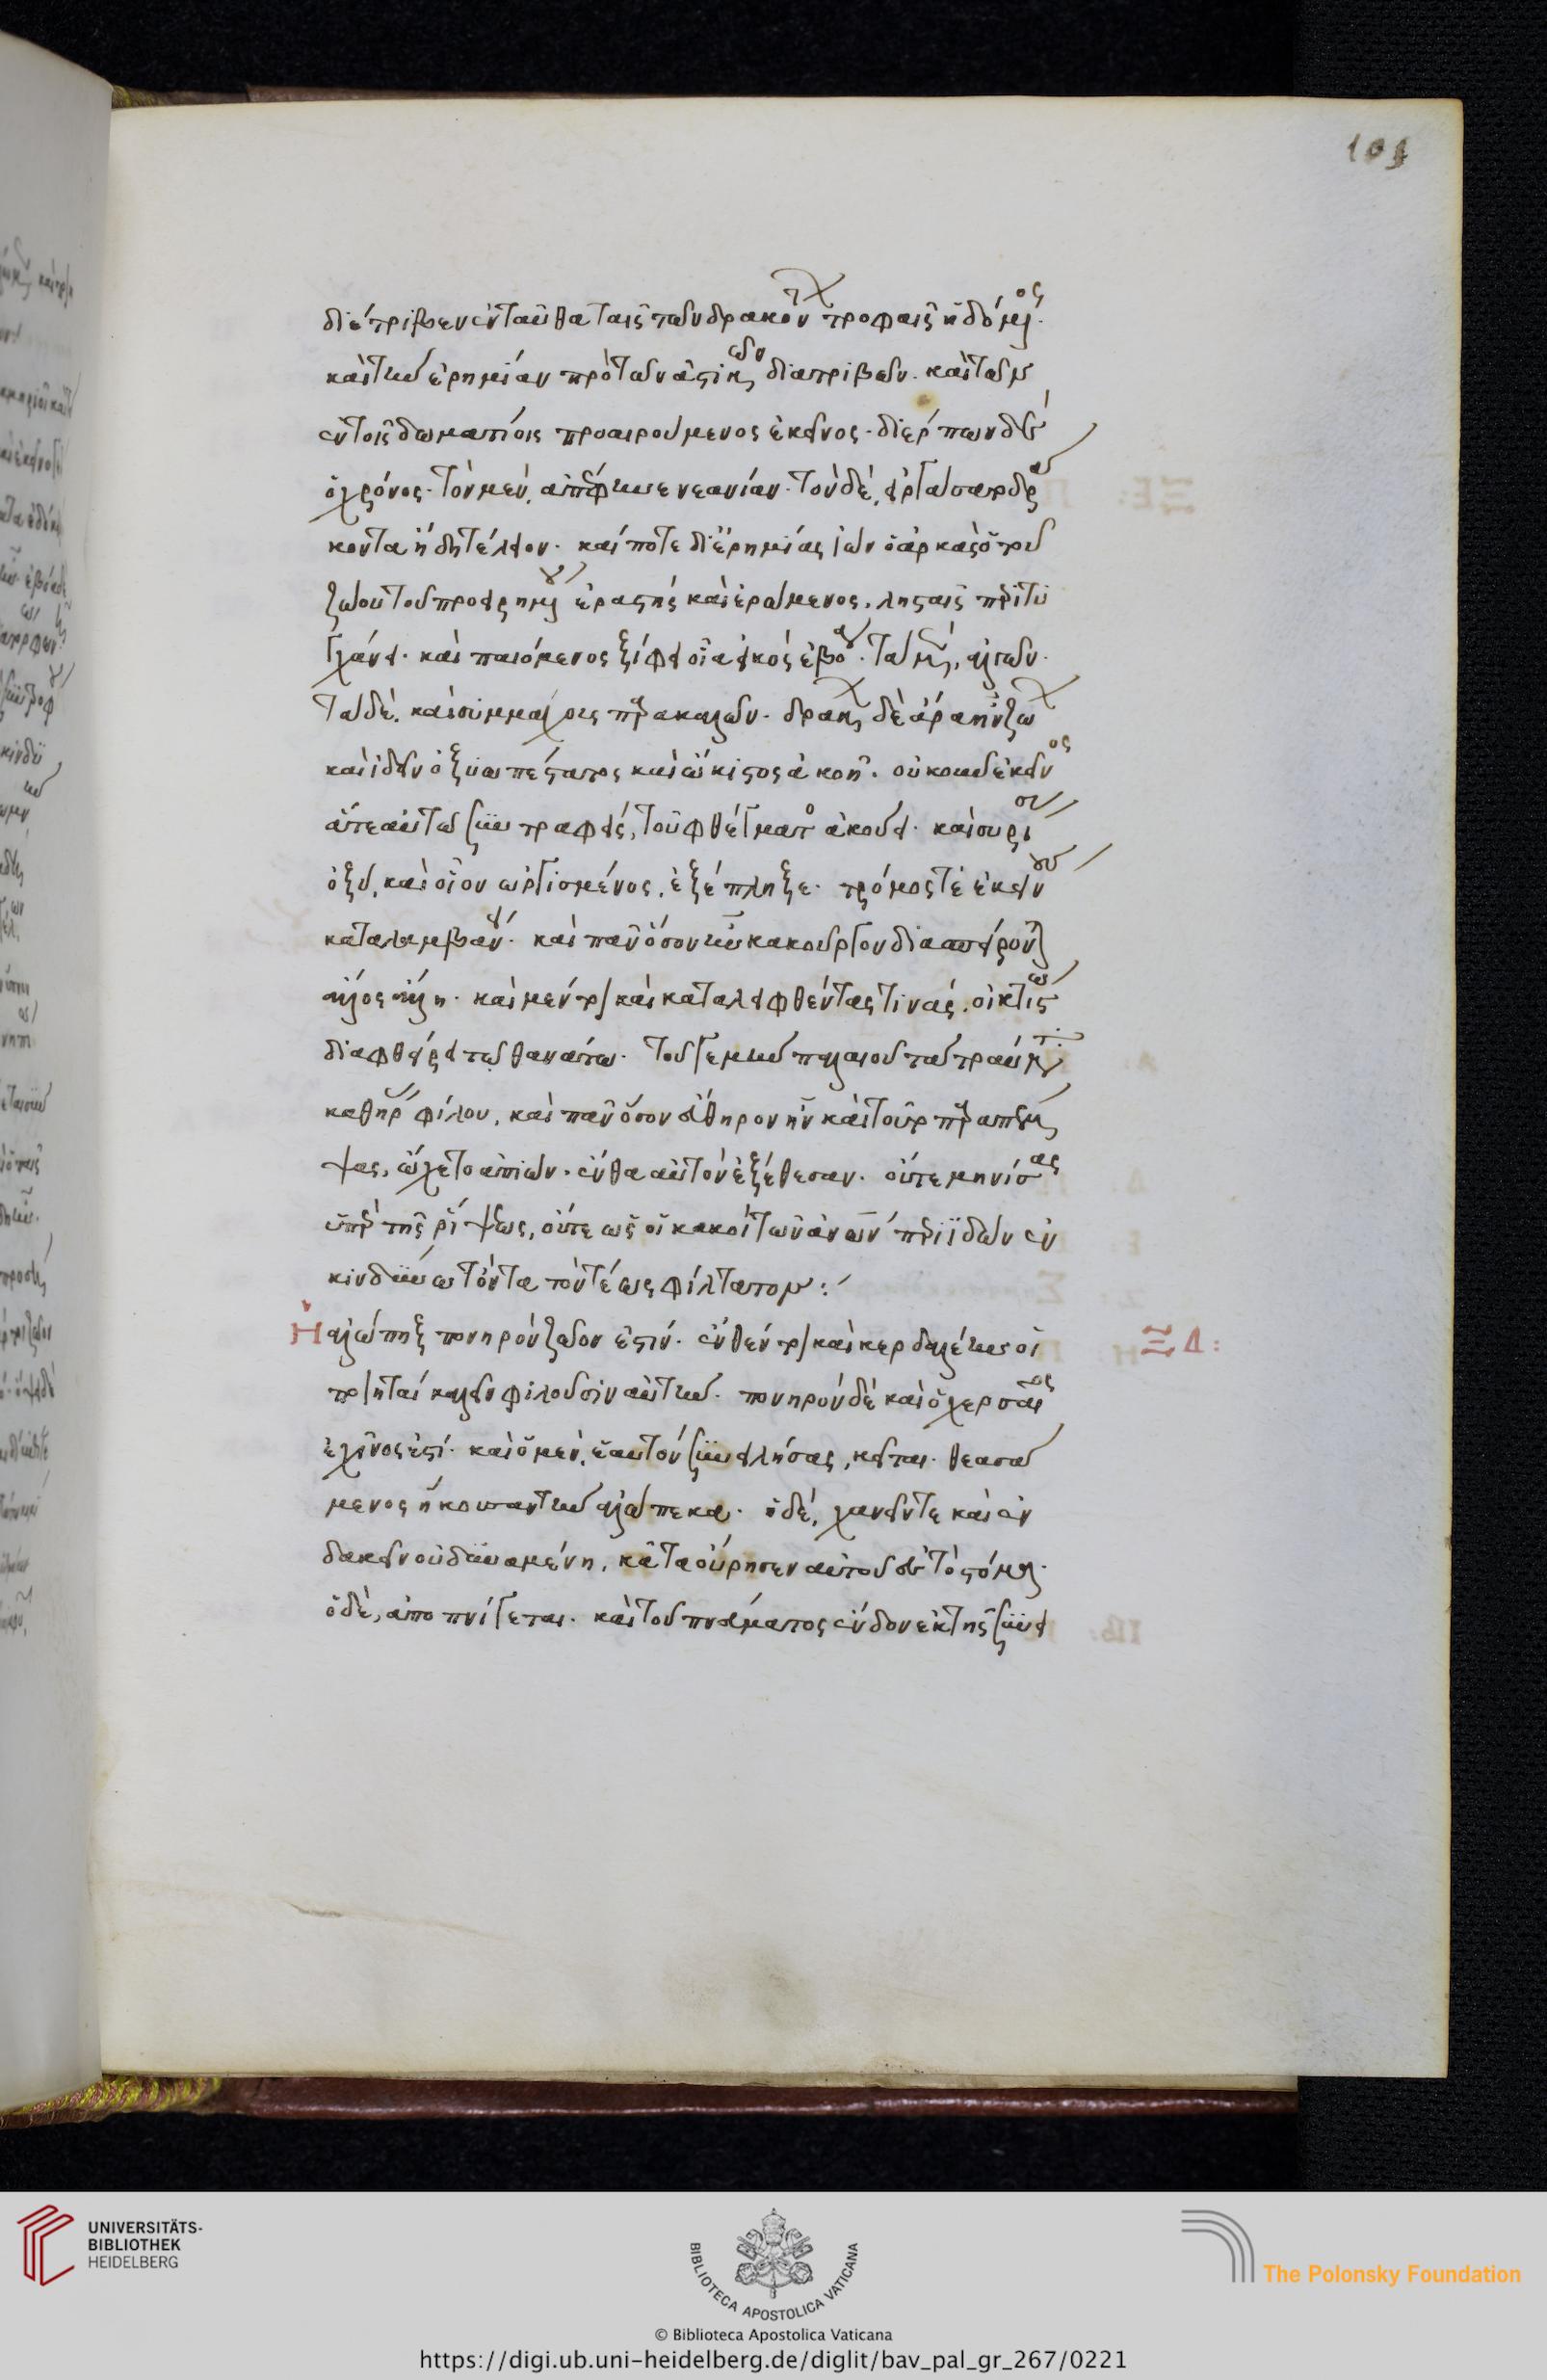 διέτριβεν ἐνταῦθα ταῖς τῶν δρακόντων τροφαῖς ἡδόμενος·
καὶ τὴν ἐρημίαν πρὸ τῶν ἀστικῶν διατριβῶν· καὶ τῶν
ἐν τοῖς δωματίοις προαιρούμενος ἐκεῖνος· διέρπων δὲ
ὁ χρόνος· τὸν μὲν, ἀπέφηνε νεανίαν· τὸν δὲ, εἰργάσατο δρά
κοντα ἤδη τέλειον· καί ποτε δι' ἐρημίας ἰὼν ὁ ἀρκὰς ὁ τοῦ
ζώου τοῦ προειρημένου ἐραστὴς καὶ ἐρώμενος, λησταῖς περιτυ
γχάνει· καὶ παιόμενος ξίφει οἷα εἰκὸς ἐβόα· τὰ μὲν, ἀλγῶν·
τὰ δὲ, καὶ συμμάχους παρακαλῶν· δράκων δὲ ἄρα ἦν ζῶον
καὶ ἰδεῖν ὀξυωπέστατος καὶ ὤκιστος ἀκοήν· οὐκοῦν ἐκεῖνος
ἅτε αὐτῶ συντραφεὶς, τοῦ φθέγματος ἀκούει· καὶ συρίσας
ὀξὺ, καὶ οἷον ὠργισμένος, ἐξέπληξε· τρόμος τὲ ἐκείνους
καταλαμβάνει· καὶ πᾶν ὅσον ἦν κακοῦργον διασπείρονται
ἄλλος ἄλλη· καὶ μέντοι καὶ καταλειφθέντας τινάς, οἰκτίστω
διαφθείρει τῶ θανάτω· τοῦ γε μὴν παλαιοῦ τὰ τραύματα
καθήρας φίλου, καὶ πᾶν ὅσον ἔνθηρον ἦν καὶ τοῦτο παραπέμ
ψας, ὤχετο ἀπιὼν· ἔνθα αὐτὸν ἐξέθεσαν· οὔτε μηνίσας
ὑπὲρ τῆς ῥίψεως, οὔτε ὡς οἱ κακοὶ τῶν ἀνων περιϊδὼν ἐν
κινδύνω τόντα τὸν τέως φίλτατον :
Ἡ ἀλώπηξ πονηρὸν ζῶον ἐστίν· ἔνθεν τοι καὶ κερδαλέην οἱ
ποιηταὶ καλεῖν φιλοῦσιν αὐτὴν· πονηρὸν δὲ καὶ ὁ χερσαῖος
ἐχῖνος ἐστί· καὶ ὁ μὲν, ἑαυτὸν συνειλήσας, κεῖται· θεασά
μενος ἥκουσαν τὴν ἀλώπεκα· ἡ δὲ, χανεῖν τε καὶ ἐν
δακεῖν οὐ δυναμένη, κᾆτα οὔρησεν αὐτοῦ ἐς τὸ στόμα·
ὁ δὲ, ἀποπνίγεται· καὶ τοῦ πνεύματος ἔνδον ἐκ τῆς συνει
ΞΔ:
UNIVERSITÄTS-
BIBLIOTHEK
HEIDELBERG
BIBLIOTECA APOSTOLICA VATICANA
The Polonsky Foundation
© Biblioteca Apostolica Vaticana
https://digi.ub.uni-heidelberg.de/diglit/bav_pal_gr_267/0221